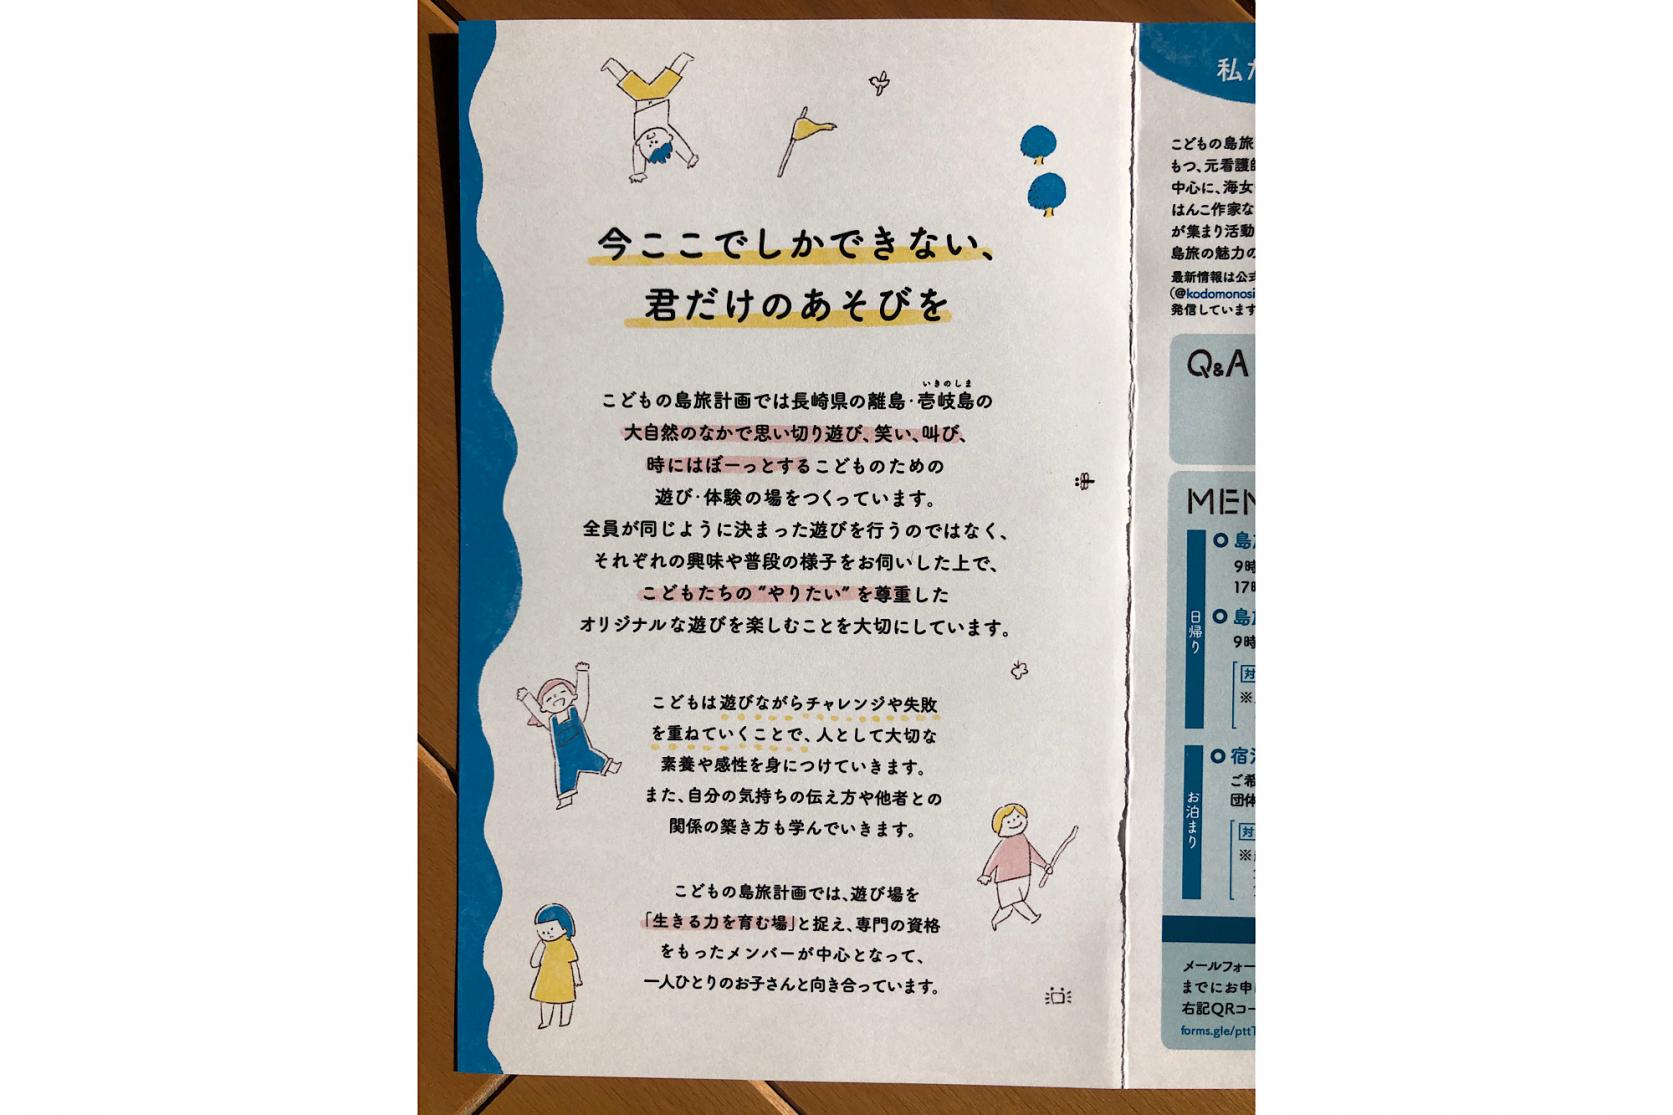 今ここでしかできない、
君だけのあそびを
いきのしま
こどもの島旅計画では長崎県の離島・壱岐島の
大自然のなかで思い切り遊び、笑い、叫び、
時にはぼーっとするこどものための
遊び・体験の場をつくっています。
全員が同じように決まった遊びを行うのではなく、
それぞれの興味や普段の様子をお伺いした上で、
こどもたちの“やりたい”を尊重した
オリジナルな遊びを楽しむことを大切にしています。
こどもは遊びながらチャレンジや失敗
を重ねていくことで、人として大切な
素養や感性を身につけていきます。
また、自分の気持ちの伝え方や他者との
関係の築き方も学んでいきます。
こどもの島旅計画では、遊び場を
「生きる力を育む場」と捉え、専門の資格
をもったメンバーが中心となって、
一人ひとりのお子さんと向き合っています。
私
こどもの島旅
もつ、元看護
中心に、海女
はんこ作家な
が集まり活動
島旅の魅力の
最新情報は公式
(@kodomonosi
発信しています
Q&A
MEN
日帰り
島
9時
17時
島
9時
対
※
お泊まり
宿
ご希
団体
対
※
メールフォー
までにお申
右記QRコー
forms.gle/ptt